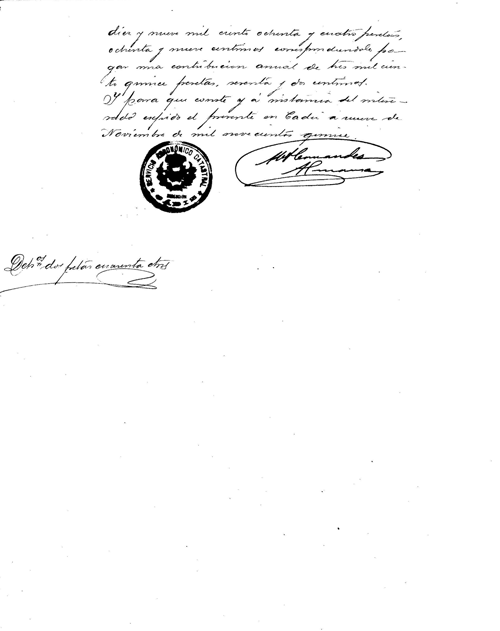 diez y nueve mil ciento ochenta y cuatro pesetas,
ochenta y nueve centimos correspondiendole pa-
gar una contribucion anual de tres mil cien-
to quince pesetas, sesenta y dos centimos.
Y para que conste y á instancia del intere-
sado expido el presente en Cadiz a nueve de
Noviembre de mil novecientos quince.
SERVICIO AGRONÓMICO CATASTRAL
CADIZ
Hernandez
Dchos dos ptas cuarenta cts